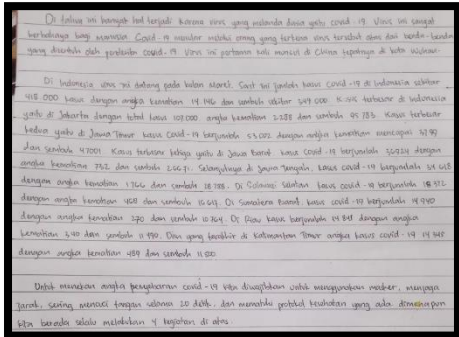 Di tahun ini banyak hal terjadi karena virus yang melanda dunia yaitu covid-19. Virus ini sangat
berbahaya bagi manusia. Covid-19 menular melalui orang yang terkena virus tersebut atau dari benda-benda
yang disentuh oleh penderita covid-19. Virus ini pertama kali muncul di China tepatnya di kota Wuhan.
Di Indonesia, virus ini datang pada bulan Maret. Saat ini jumlah kasus covid-19 di Indonesia sekitar
418.000 kasus dengan angka kematian 14.146 dan sembuh sekitar 349.000. Kasus terbesar di Indonesia
yaitu di Jakarta dengan total kasus 107.000 angka kematian 2288 dan sembuh 95.783. Kasus terbesar
kedua yaitu di Jawa Timur kasus Covid-19 berjumlah 53.002 dengan angka kematian mencapai
dan sembuh 47001. Kasus terbesar ketiga yaitu di Jawa Barat kasus Covid-19 berjumlah dengan
angka kematian 732 dan sembuh Selanjutnya di Jawa Tengah, kasus covid-19 berjumlah
dengan angka kematian 1766 dan sembuh Di Sulawesi Selatan kasus covid-19 berjumlah
dengan angka kematian dan sembuh Di Sumatera Barat kasus covid-19 berjumlah 14.940
dengan angka kematian 270 dan sembuh 10.764. Di Riau kasus berjumlah 14.841 dengan angka
kematian 340 dan sembuh 11.490. Dan yang terakhir di Kalimantan Timur angka kasus covid-19
dengan angka kematian 489 dan sembuh
Untuk menekan angka penyebaran covid-19 kita diwajibkan untuk menggunakan masker, menjaga
jarak, sering mencuci tangan selama 20 detik, dan mematuhi protokol kesehatan yang ada dimanapun
kita berada selalu melakukan 4 kegiatan di atas.